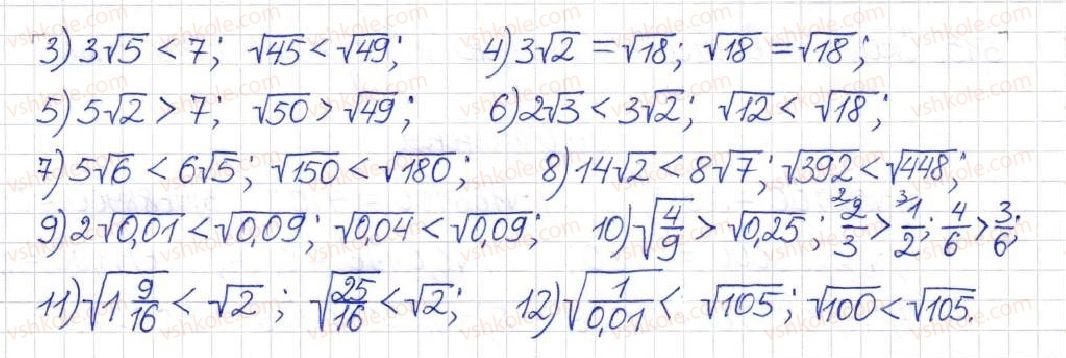 3) 3√5 < 7; √45 < √49; 4) 3√2 = √18; √18 = √18;
5) 5√2 > 7; √50 > √49; 6) 2√3 < 3√2; √12 < √18;
7) 5√6 < 6√5; √150 < √180; 8) 14√2 < 8√7; √392 < √448;
9) 2√0,01 < √0,09; √0,04 < √0,09; 10) √(4/9) > √0,25; ²2/3 > ³1/2; 4/6 > 3/6;
11) √(1 9/16) < √2; √(25/16) < √2; 12) √(1/0,01) < √105; √100 < √105.